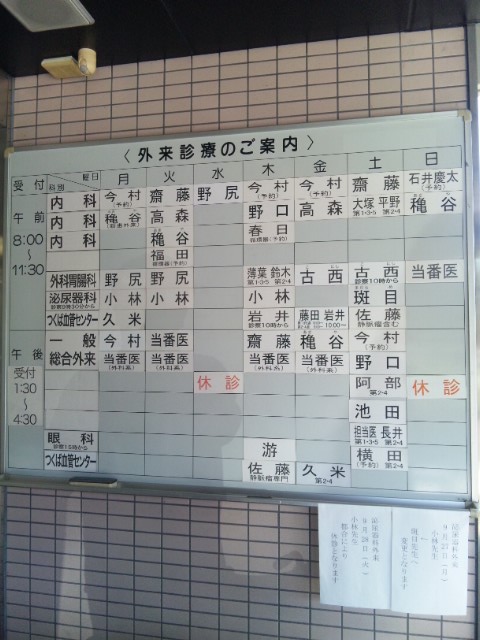 〈外来診療のご案内〉
受付 科別 曜日 月 火 水 木 金 土 日
午前 8:00 〜 11:30
内科 今村(予約) 齋藤 野尻 今村(予約) 今村(予約) 齋藤 石井慶太(予約)
内科 穐谷 高森 野口 高森 大塚 平野 穐谷
第1·3·5 第2·4
内科 穐谷 春日
福田
外科胃腸科 野尻 野尻 薄葉 鈴木 古西 古西 当番医
第1·3·5 第2·4 診察10時から
泌尿器科 小林 小林 小林 斑目
つくば血管センター 久米 岩井 藤田 岩井 佐藤
診察10時から 静脈瘤含む
午後 受付 1:30 〜 4:30
一般 今村 当番医 齋藤 穐谷 今村
総合外来 当番医(外科系) 当番医(外科系) 当番医(外科系) 当番医(外科系) 野口
休診 阿部 休診
第2·4
池田
眼科 游 担当医 長井
第1·3·5 第2·4
つくば血管センター 佐藤 久米 横田
静脈瘤専門 第2·4 (予約) 第2·4
泌尿器科外来
9月27日(月)
小林先生
↓
斑目先生へ
変更となります
泌尿器科外来
9月28日(火)
小林先生
都合により
休診となります